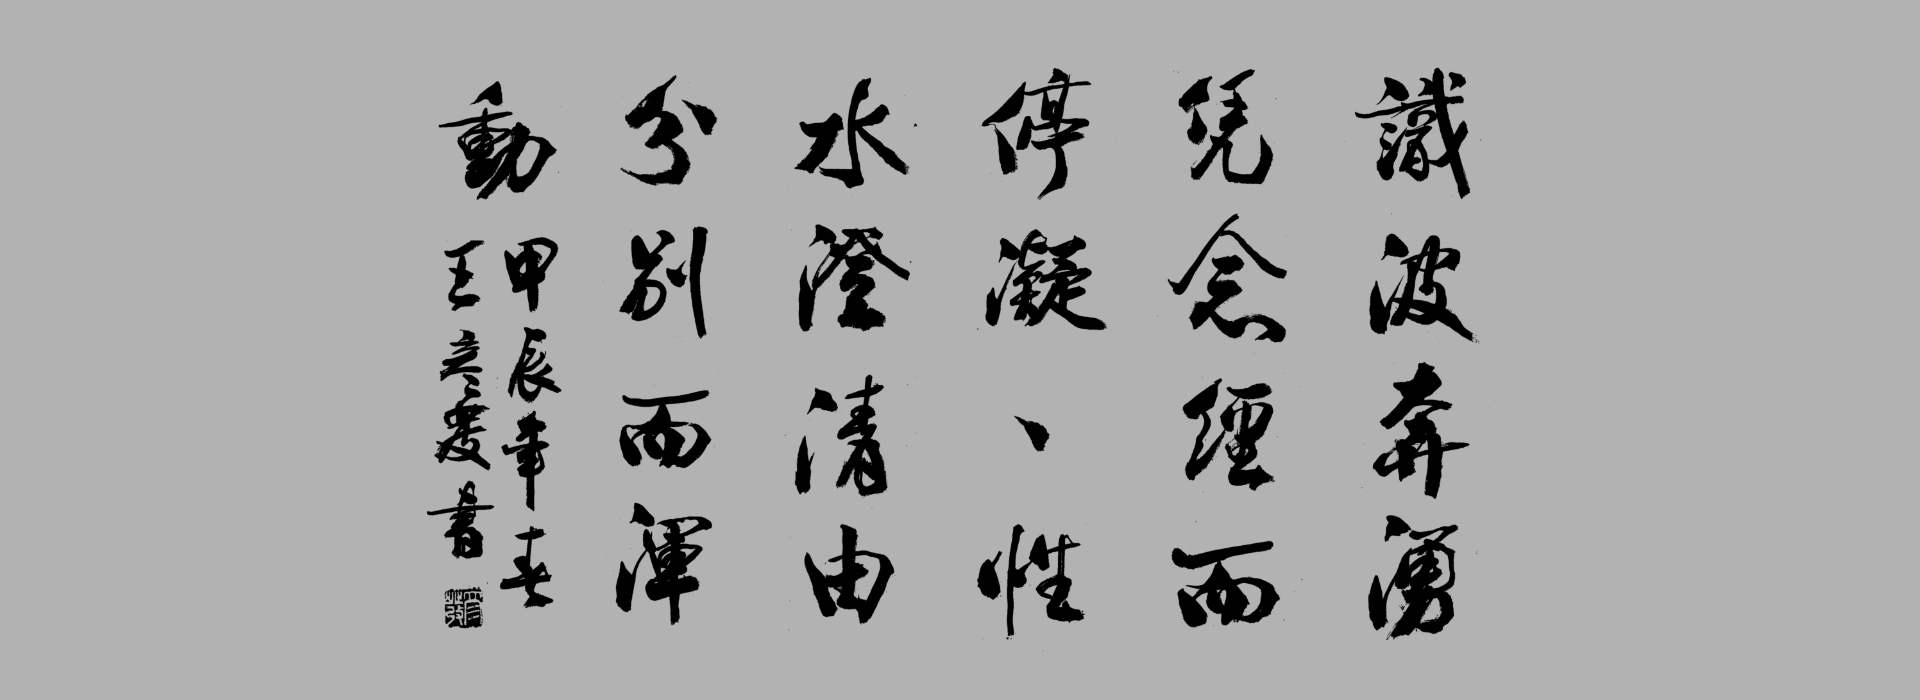 識波奔湧
凭念經而
停凝、性
水澄清由
分别而渾
動
甲辰年春
王彦慶書